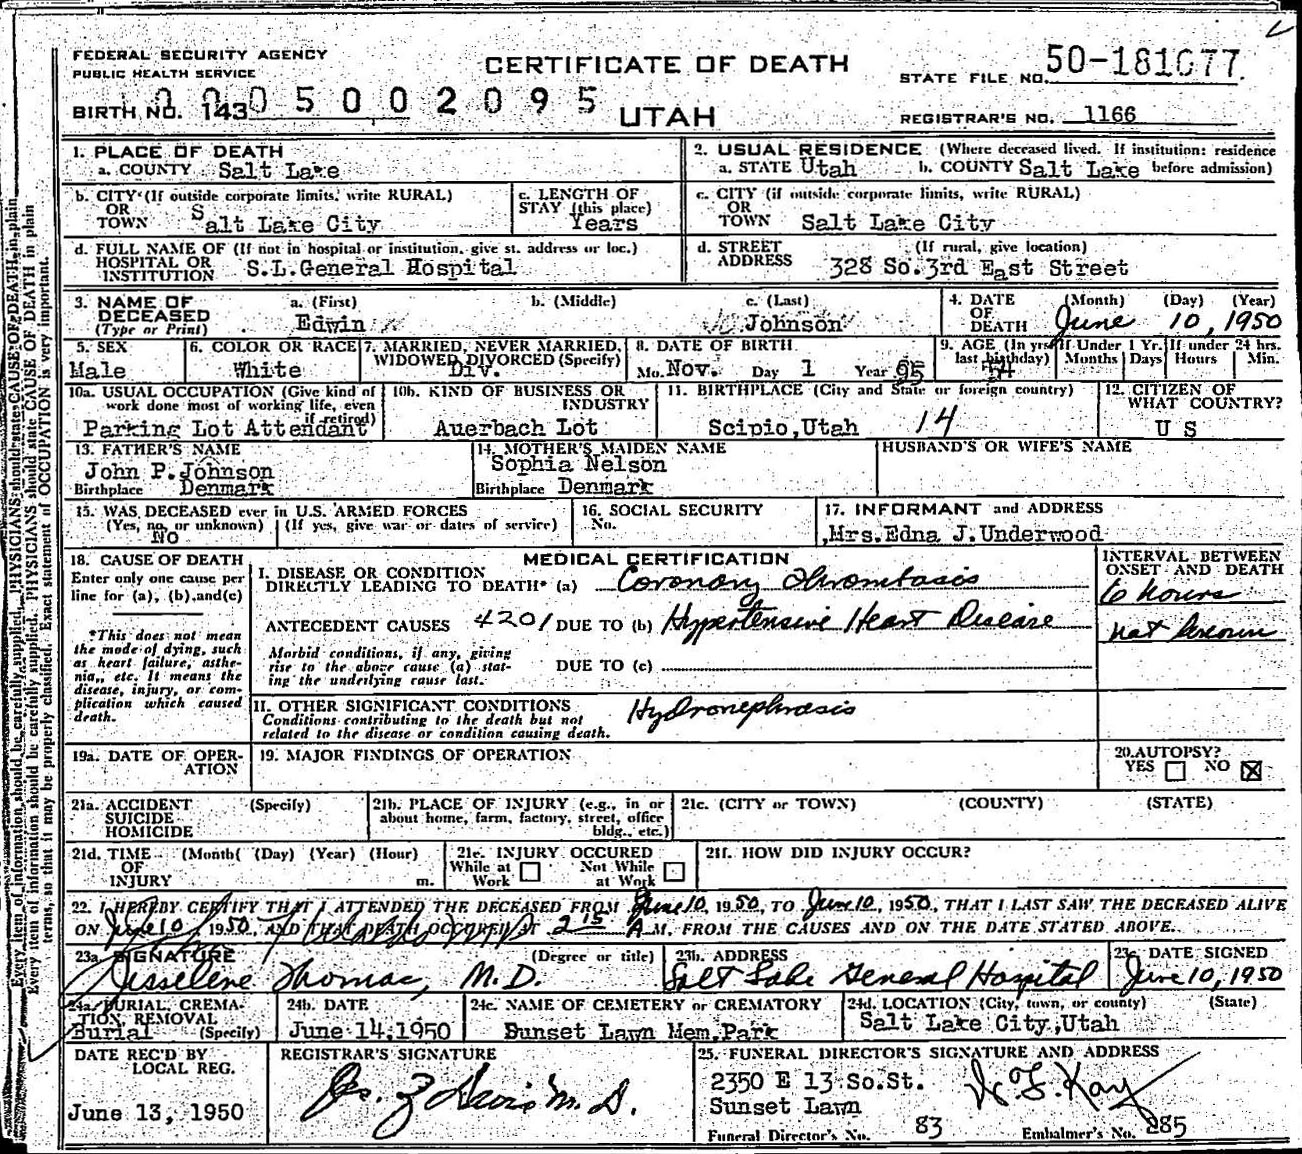 FEDERAL SECURITY AGENCY
PUBLIC HEALTH SERVICE
CERTIFICATE OF DEATH
STATE FILE NO. 50-181077
BIRTH NO. 143 0 5 0 0 2 0 9 5
UTAH
REGISTRAR'S NO. 1166
1. PLACE OF DEATH
a. COUNTY Salt Lake
2. USUAL RESIDENCE (Where deceased lived. If institution: residence before admission)
a. STATE Utah b. COUNTY Salt Lake
b. CITY (If outside corporate limits, write RURAL)
OR TOWN Salt Lake City
c. LENGTH OF STAY (this place) Years
c. CITY (if outside corporate limits, write RURAL)
OR TOWN Salt Lake City
d. FULL NAME OF (If not in hospital or institution, give st. address or loc.)
HOSPITAL OR INSTITUTION S.L.General Hospital
d. STREET ADDRESS (If rural, give location)
328 So.3rd East Street
3. NAME OF DECEASED (Type or Print)
a. (First) Edwin
b. (Middle)
c. (Last) Johnson
4. DATE OF DEATH (Month) (Day) (Year)
June 10, 1950
5. SEX
Male
6. COLOR OR RACE
White
7. MARRIED, NEVER MARRIED, WIDOWED, DIVORCED (Specify)
Div.
8. DATE OF BIRTH
Mo. Nov. Day 1 Year 95
9. AGE (In yrs. last birthday) 54
If Under 1 Yr. Months Days
If under 24 hrs. Hours Min.
10a. USUAL OCCUPATION (Give kind of work done most of working life, even if retired)
Parking Lot Attendant
10b. KIND OF BUSINESS OR INDUSTRY
Auerbach Lot
11. BIRTHPLACE (City and State or foreign country)
Scipio,Utah 14
12. CITIZEN OF WHAT COUNTRY?
U S
13. FATHER'S NAME
John P.Johnson
Birthplace Denmark
14. MOTHER'S MAIDEN NAME
Sophia Nelson
Birthplace Denmark
HUSBAND'S OR WIFE'S NAME
15. WAS DECEASED ever in U.S. ARMED FORCES
(Yes, no, or unknown) (If yes, give war or dates of service)
No
16. SOCIAL SECURITY No.
17. INFORMANT and ADDRESS
Mrs.Edna J.Underwood
18. CAUSE OF DEATH
Enter only one cause per line for (a), (b), and (c)
*This does not mean the mode of dying, such as heart failure, asthenia, etc. It means the disease, injury, or complication which caused death.
MEDICAL CERTIFICATION
INTERVAL BETWEEN ONSET AND DEATH
I. DISEASE OR CONDITION DIRECTLY LEADING TO DEATH* (a) Coronary Thrombosis 6 hours
ANTECEDENT CAUSES 4201 DUE TO (b) Hypertensive Heart Disease not known
Morbid conditions, if any, giving rise to the above cause (a) stating the underlying cause last.
DUE TO (c)
II. OTHER SIGNIFICANT CONDITIONS Hydronephrosis
Conditions contributing to the death but not related to the disease or condition causing death.
19a. DATE OF OPERATION
19. MAJOR FINDINGS OF OPERATION
20. AUTOPSY?
YES NO X
21a. ACCIDENT SUICIDE HOMICIDE (Specify)
21b. PLACE OF INJURY (e.g., in or about home, farm, factory, street, office bldg., etc.)
21c. (CITY or TOWN) (COUNTY) (STATE)
21d. TIME OF INJURY (Month( (Day) (Year) (Hour) m.
21e. INJURY OCCURED
While at Work Not While at Work
21f. HOW DID INJURY OCCUR?
22. I HEREBY CERTIFY THAT I ATTENDED THE DECEASED FROM June 10, 1950, TO June 10, 1950, THAT I LAST SAW THE DECEASED ALIVE
ON June 10 1950, AND THAT DEATH OCCURED AT 2 15 A M. FROM THE CAUSES AND ON THE DATE STATED ABOVE.
23a. SIGNATURE (Degree or title)
Thomas, M.D.
23b. ADDRESS
Salt Lake General Hospital
23c. DATE SIGNED
June 10, 1950
24a. BURIAL, CREMATION, REMOVAL (Specify)
Burial
24b. DATE
June 14,1950
24c. NAME OF CEMETERY or CREMATORY
Sunset Lawn Mem.Park
24d. LOCATION (City, town, or county) (State)
Salt Lake City,Utah
DATE REC'D BY LOCAL REG.
June 13, 1950
REGISTRAR'S SIGNATURE
M.D.
25. FUNERAL DIRECTOR'S SIGNATURE AND ADDRESS
2350 E 13 So.St.
Sunset Lawn
Funeral Director's No. 83
Embalmer's No. 285
Every item of information should be carefully supplied. PHYSICIANS should state CAUSE OF DEATH in plain
terms, so that it may be properly classified. Exact statement of OCCUPATION is very important.